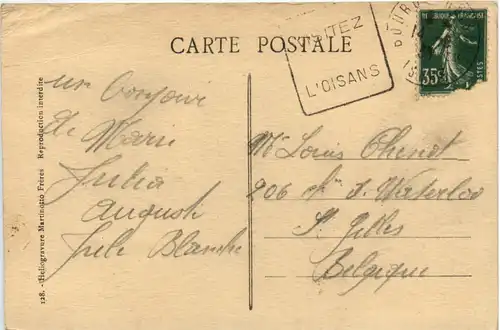 CARTE POSTALE
VISITEZ
L'OISANS
BOURG
35c
POSTES
128. - Héliogravure Martinotto Frères Reproduction interdite
un bonjour
de Marie
Julia
August
Jule Blanche
Mr Louis Chenot
206 de Waterloo
St Gilles
Belgique